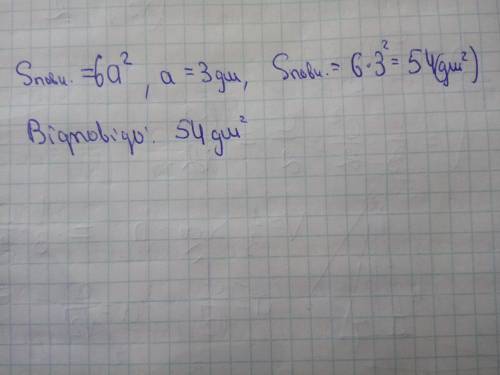 Sповн. = 6a², a = 3 дм, Sповн. = 6·3² = 54(дм²)
Відповідь: 54 дм²